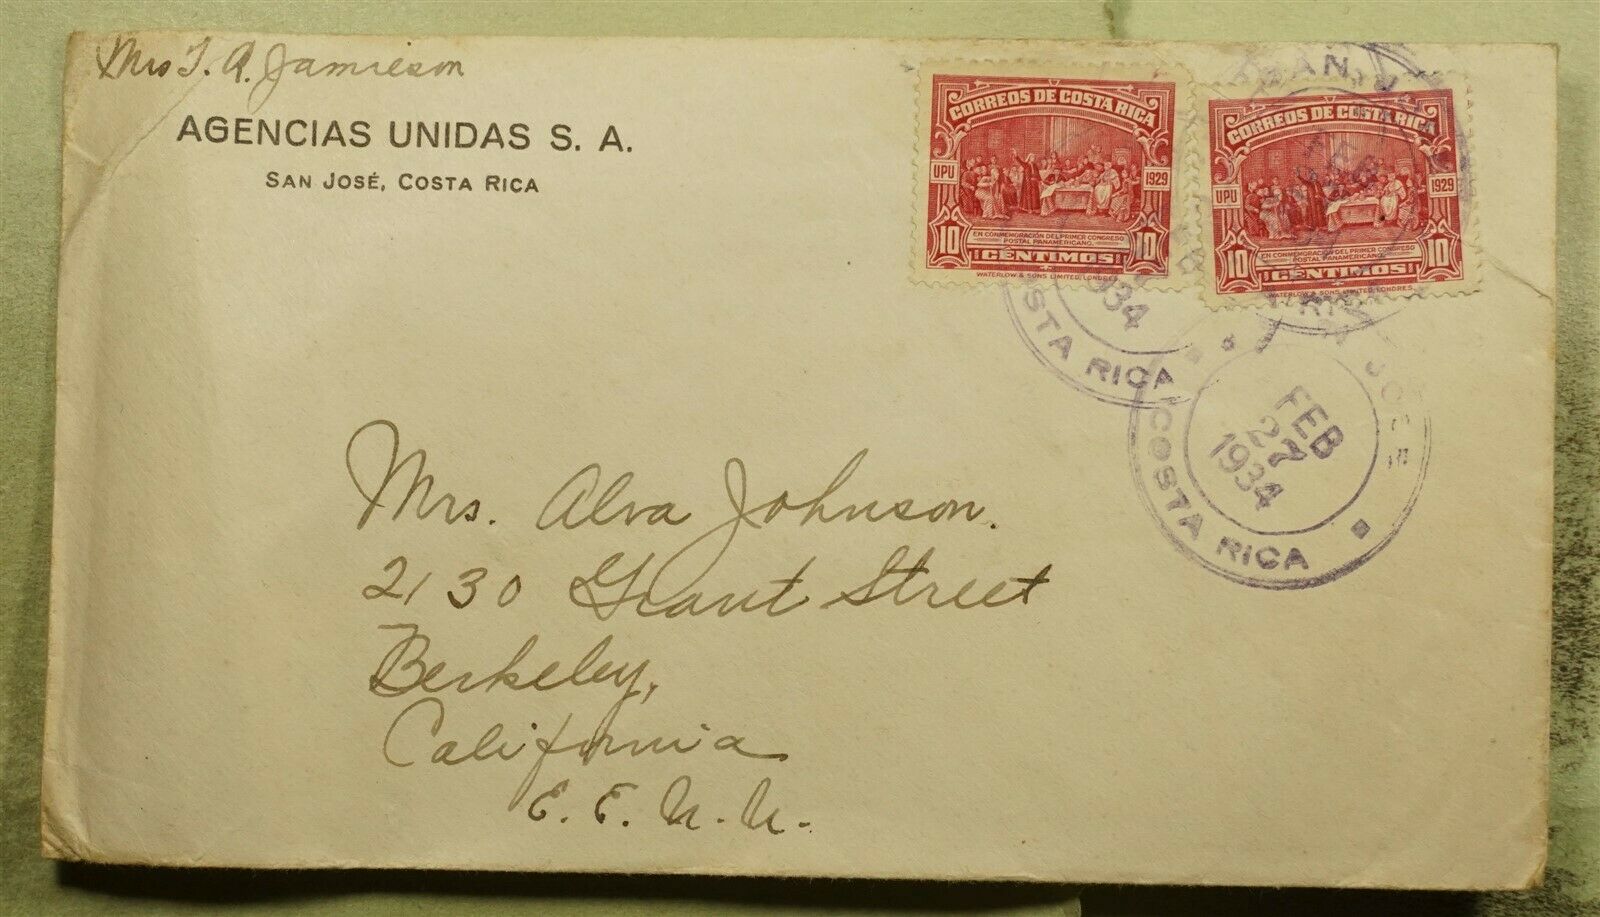 Mrs T. A. Jamieson
AGENCIAS UNIDAS S. A.
SAN JOSÉ, COSTA RICA
CORREOS DE COSTA RICA
UPU 1929
10 10
EN CONMEMORACIÓN DEL PRIMER CONGRESO
POSTAL PANAMERICANO.
CENTIMOS
WATERLOW & SONS LIMITED, LONDRES.
CORREOS DE COSTA RICA
UPU 1929
10 10
EN CONMEMORACIÓN DEL PRIMER CONGRESO
POSTAL PANAMERICANO.
CENTIMOS
WATERLOW & SONS LIMITED, LONDRES.
1934
COSTA RICA
SAN J
FEB
JOSE
FEB
27
1934
COSTA RICA
Mrs. Alva Johnson.
2130 Grant Street
Berkeley,
California
E. E. U. U.